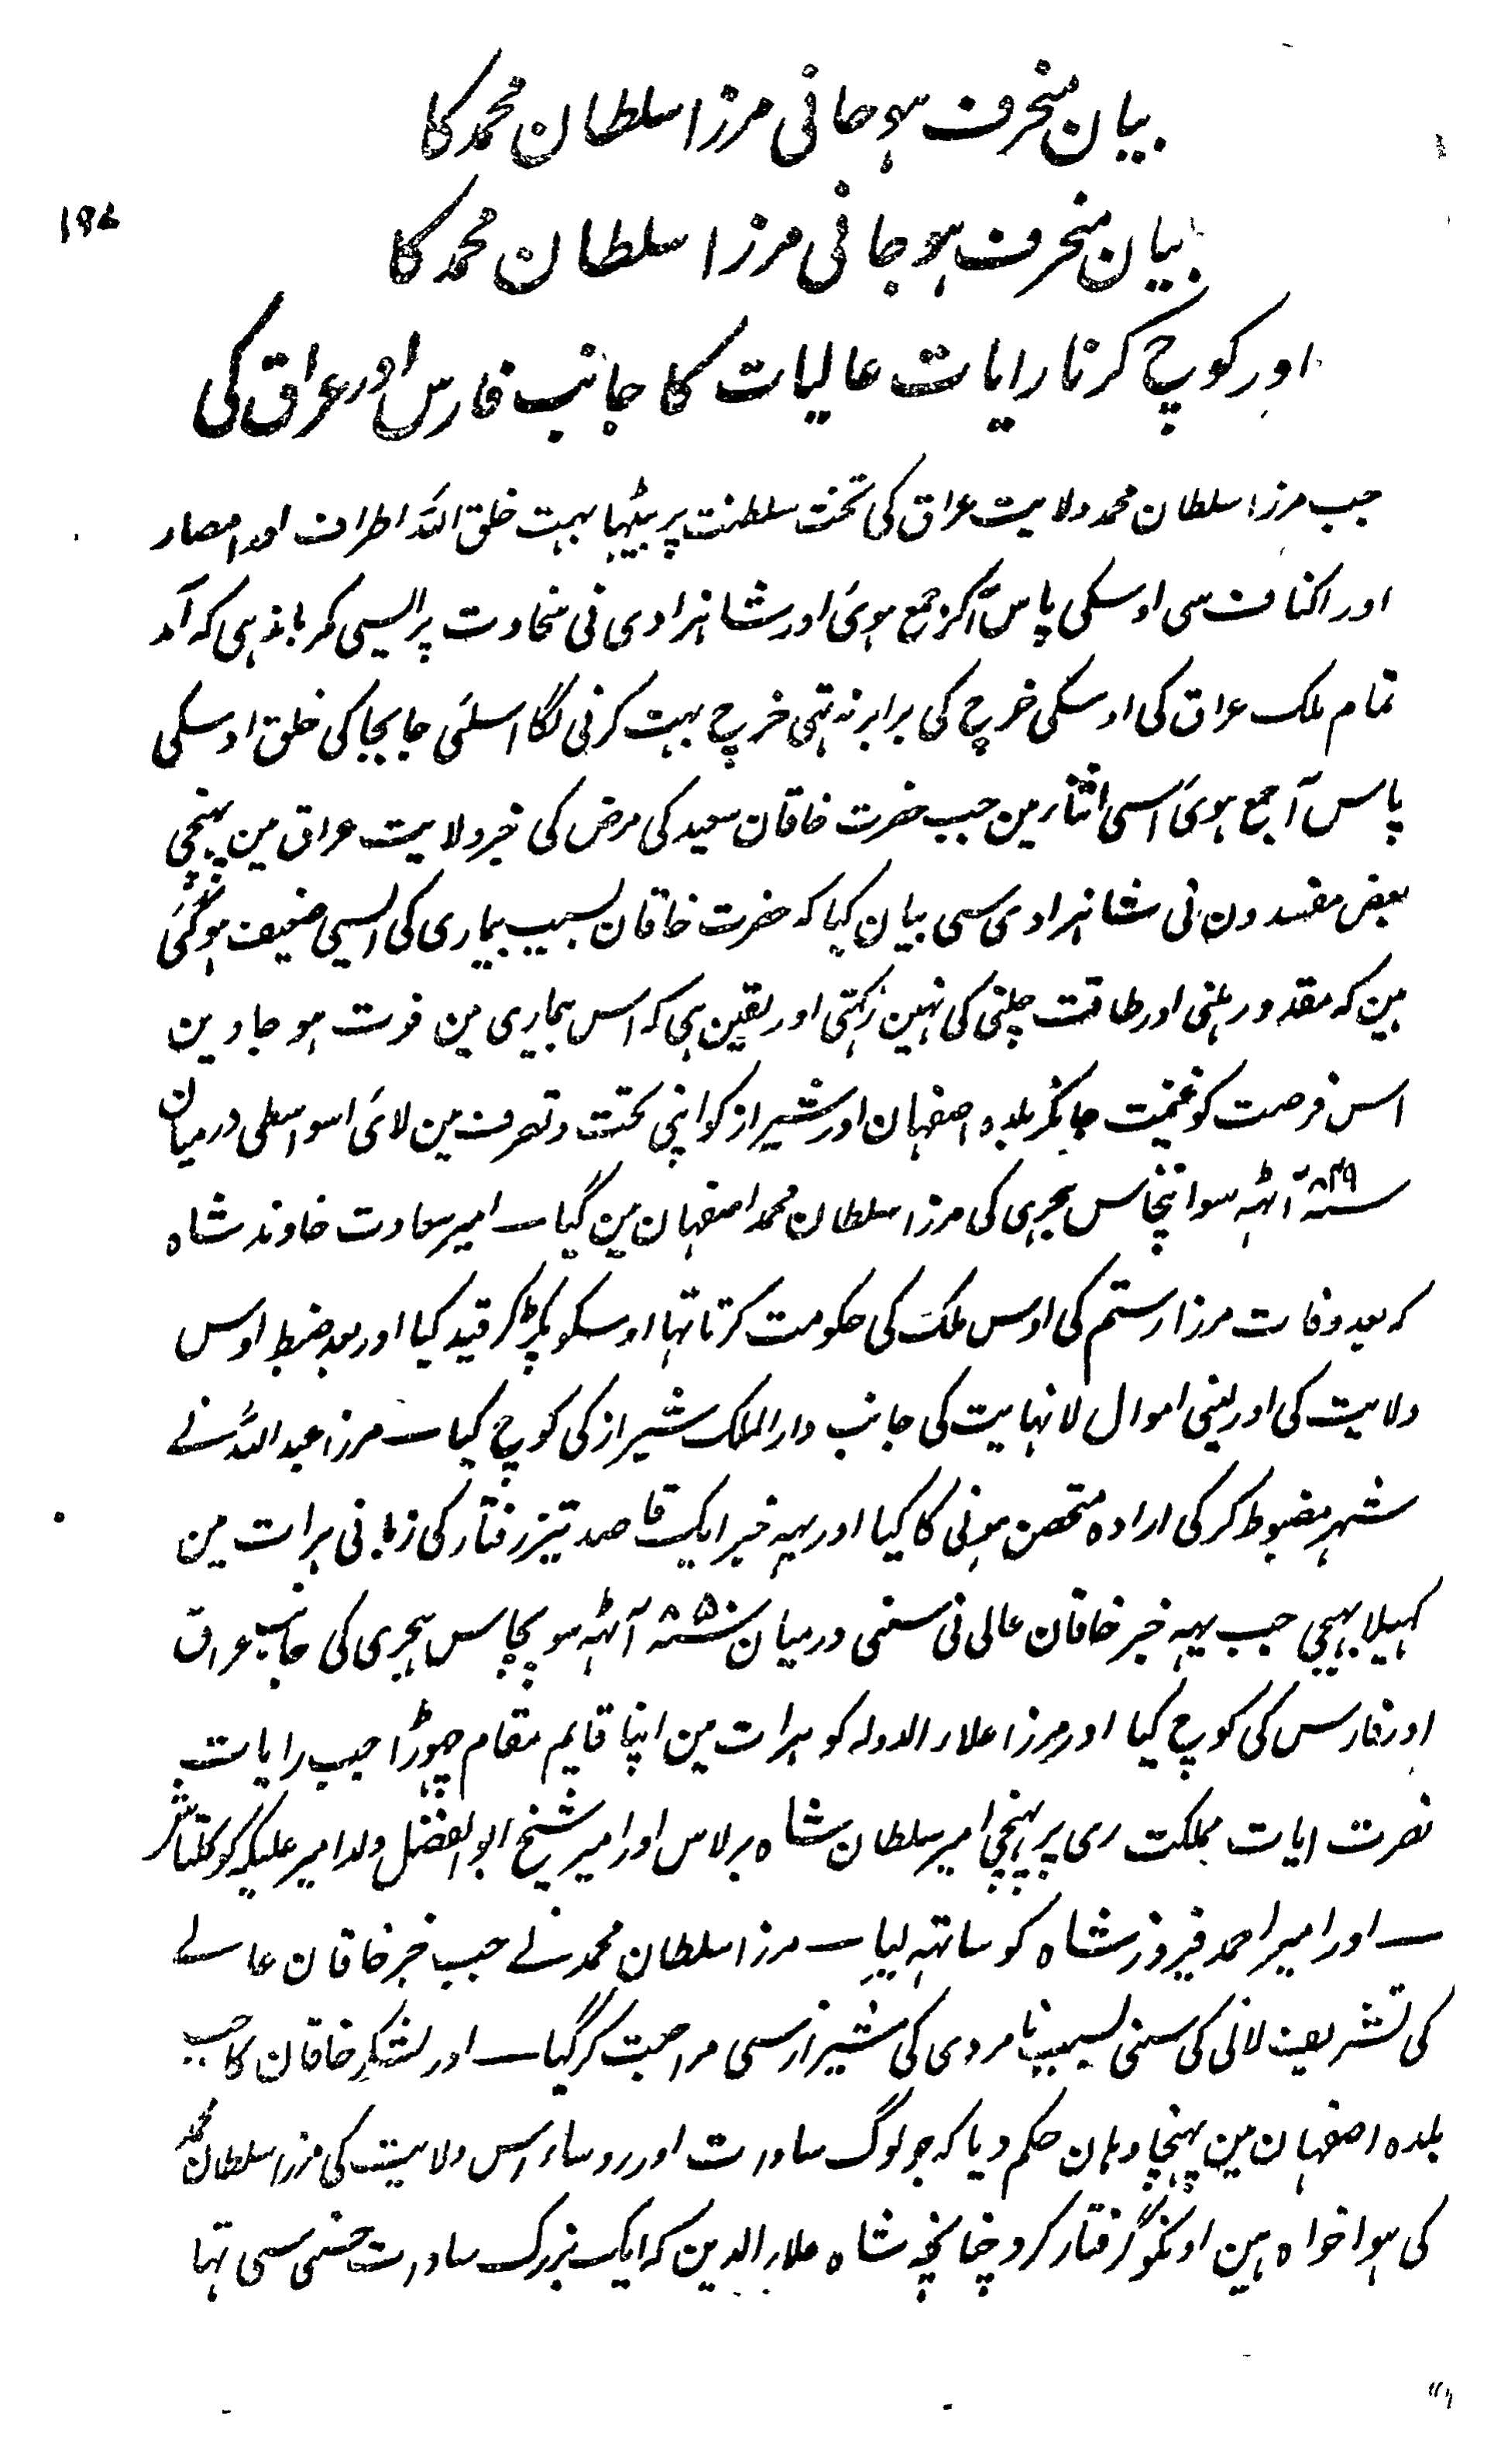 بیان منحرف ہوجانی مرزا سلطان محمد کا
۱۸۷
بیان منحرف ہوجانی مرزا سلطان محمد کا
اور کوچ کرنا رایات عالیات کا جانب فارس اور عراق کی
جب مرزا سلطان محمد ولایت عراق کی تخت سلطنت پر بیٹہا بہت خلق اللہ اطراف اور امصار
اور اکناف سی اوسکی پاس آکر جمع ہوئ اور شاہزادی نی سخاوت پر ایسی کمر باندہی کہ آمد
تمام ملک عراق کی اوسکی خرچ کی برابر نہ تہی خرچ بہت کرنی لگا اسلئی جابجا کی خلق اوسکی
پاس آ جمع ہوئ اسی اثناء مین جب حضرت خاقان سعید کی مرض کی خبر ولایت عراق مین پہنچی
بعض مفسدون نی شاہزادی سی بیان کیا کہ حضرت خاقان بسبب بیماری کی ایسی ضعیف ہوگئی
ہین کہ مقدور ہلنی اور طاقت چلنی کی نہین رکہتی اور یقین ہی کہ اس بیماری مین فوت ہوجاوین
اس فرصت کو غنیمت جانکر بلدہ اصفہان اور شیراز کو اپنی تحت و تصرف مین لائ اسواسطی درمیان
سنہ ۸۴۹ آٹہہ سو انچاس ہجری کی مرزا سلطان محمد اصفہان مین گیا ۔ امیر سعادت خاوند شاہ
کہ بعد وفات مرزا رستم کی اوس ملک کی حکومت کرتا تہا اوسکو پکڑ کر قید کیا اور بعد ضبط اوس
ولایت کی اور لینی اموال لانہایت کی جانب دارالملک شیراز کی کوچ کیا ۔ مرزا عبد اللہ نے
شہر مضبوط کرکی ارادہ متحصن ہونی کا کیا اور یہہ خبر ایک قاصد تیز رفتار کی زبانی ہرات مین
کہیلا بہیجی جب یہہ خبر خاقان عالی نی سنی درمیان سنہ ۸۵۰ آٹہہ سو پچاس ہجری کی جانب عراق
اور فارس کی کوچ کیا اور مرزا علاء الدولہ کو ہرات مین اپنا قایم مقام چہوڑا جب رایات
نصرت ایات مملکت ری پر پہنچی امیر سلطان شاہ برلاس اور امیر شیخ ابو الفضل ولد امیر علیکہ کوکلتاش
۔ اور امیر احمد فیروز شاہ کو ساتہہ لیا ۔ مرزا سلطان محمد نے جب خبر خاقان عالے
کی تشریف لانی کی سنی بسبب نامردی کی شیراز سی مراجعت کر گیا ۔ اور لشکر خاقان کا جب
بلدہ اصفہان مین پہنچا وہان حکم دیا کہ جو لوگ سادات اور روساء اس ولایت کی مرزا سلطان محمد
کی ہوا خواہ ہین اونکو گرفتار کرو چنانچہ شاہ علاء الدین کہ ایک بزرگ سادات حسنی سی تہا